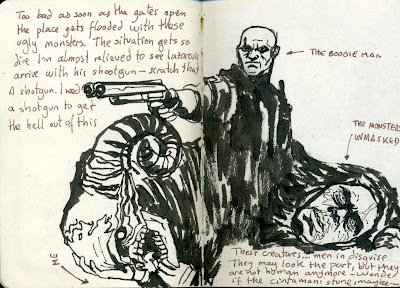 Too bad as soon as the gates open
the place gets flooded with those
ugly monsters. The situation gets so
dire I'm almost relieved to see Lazarevic
arrive with his shootgun – scratch that
A shotgun. I need
a shotgun to get
the hell out of this
← THE BOOGIE MAN
THE MONSTERS
UNMASKED
ME
These creatures... men in disguise
They may look the part, but they
are not human anymore – wonder
if the cintamani stone, maybe –